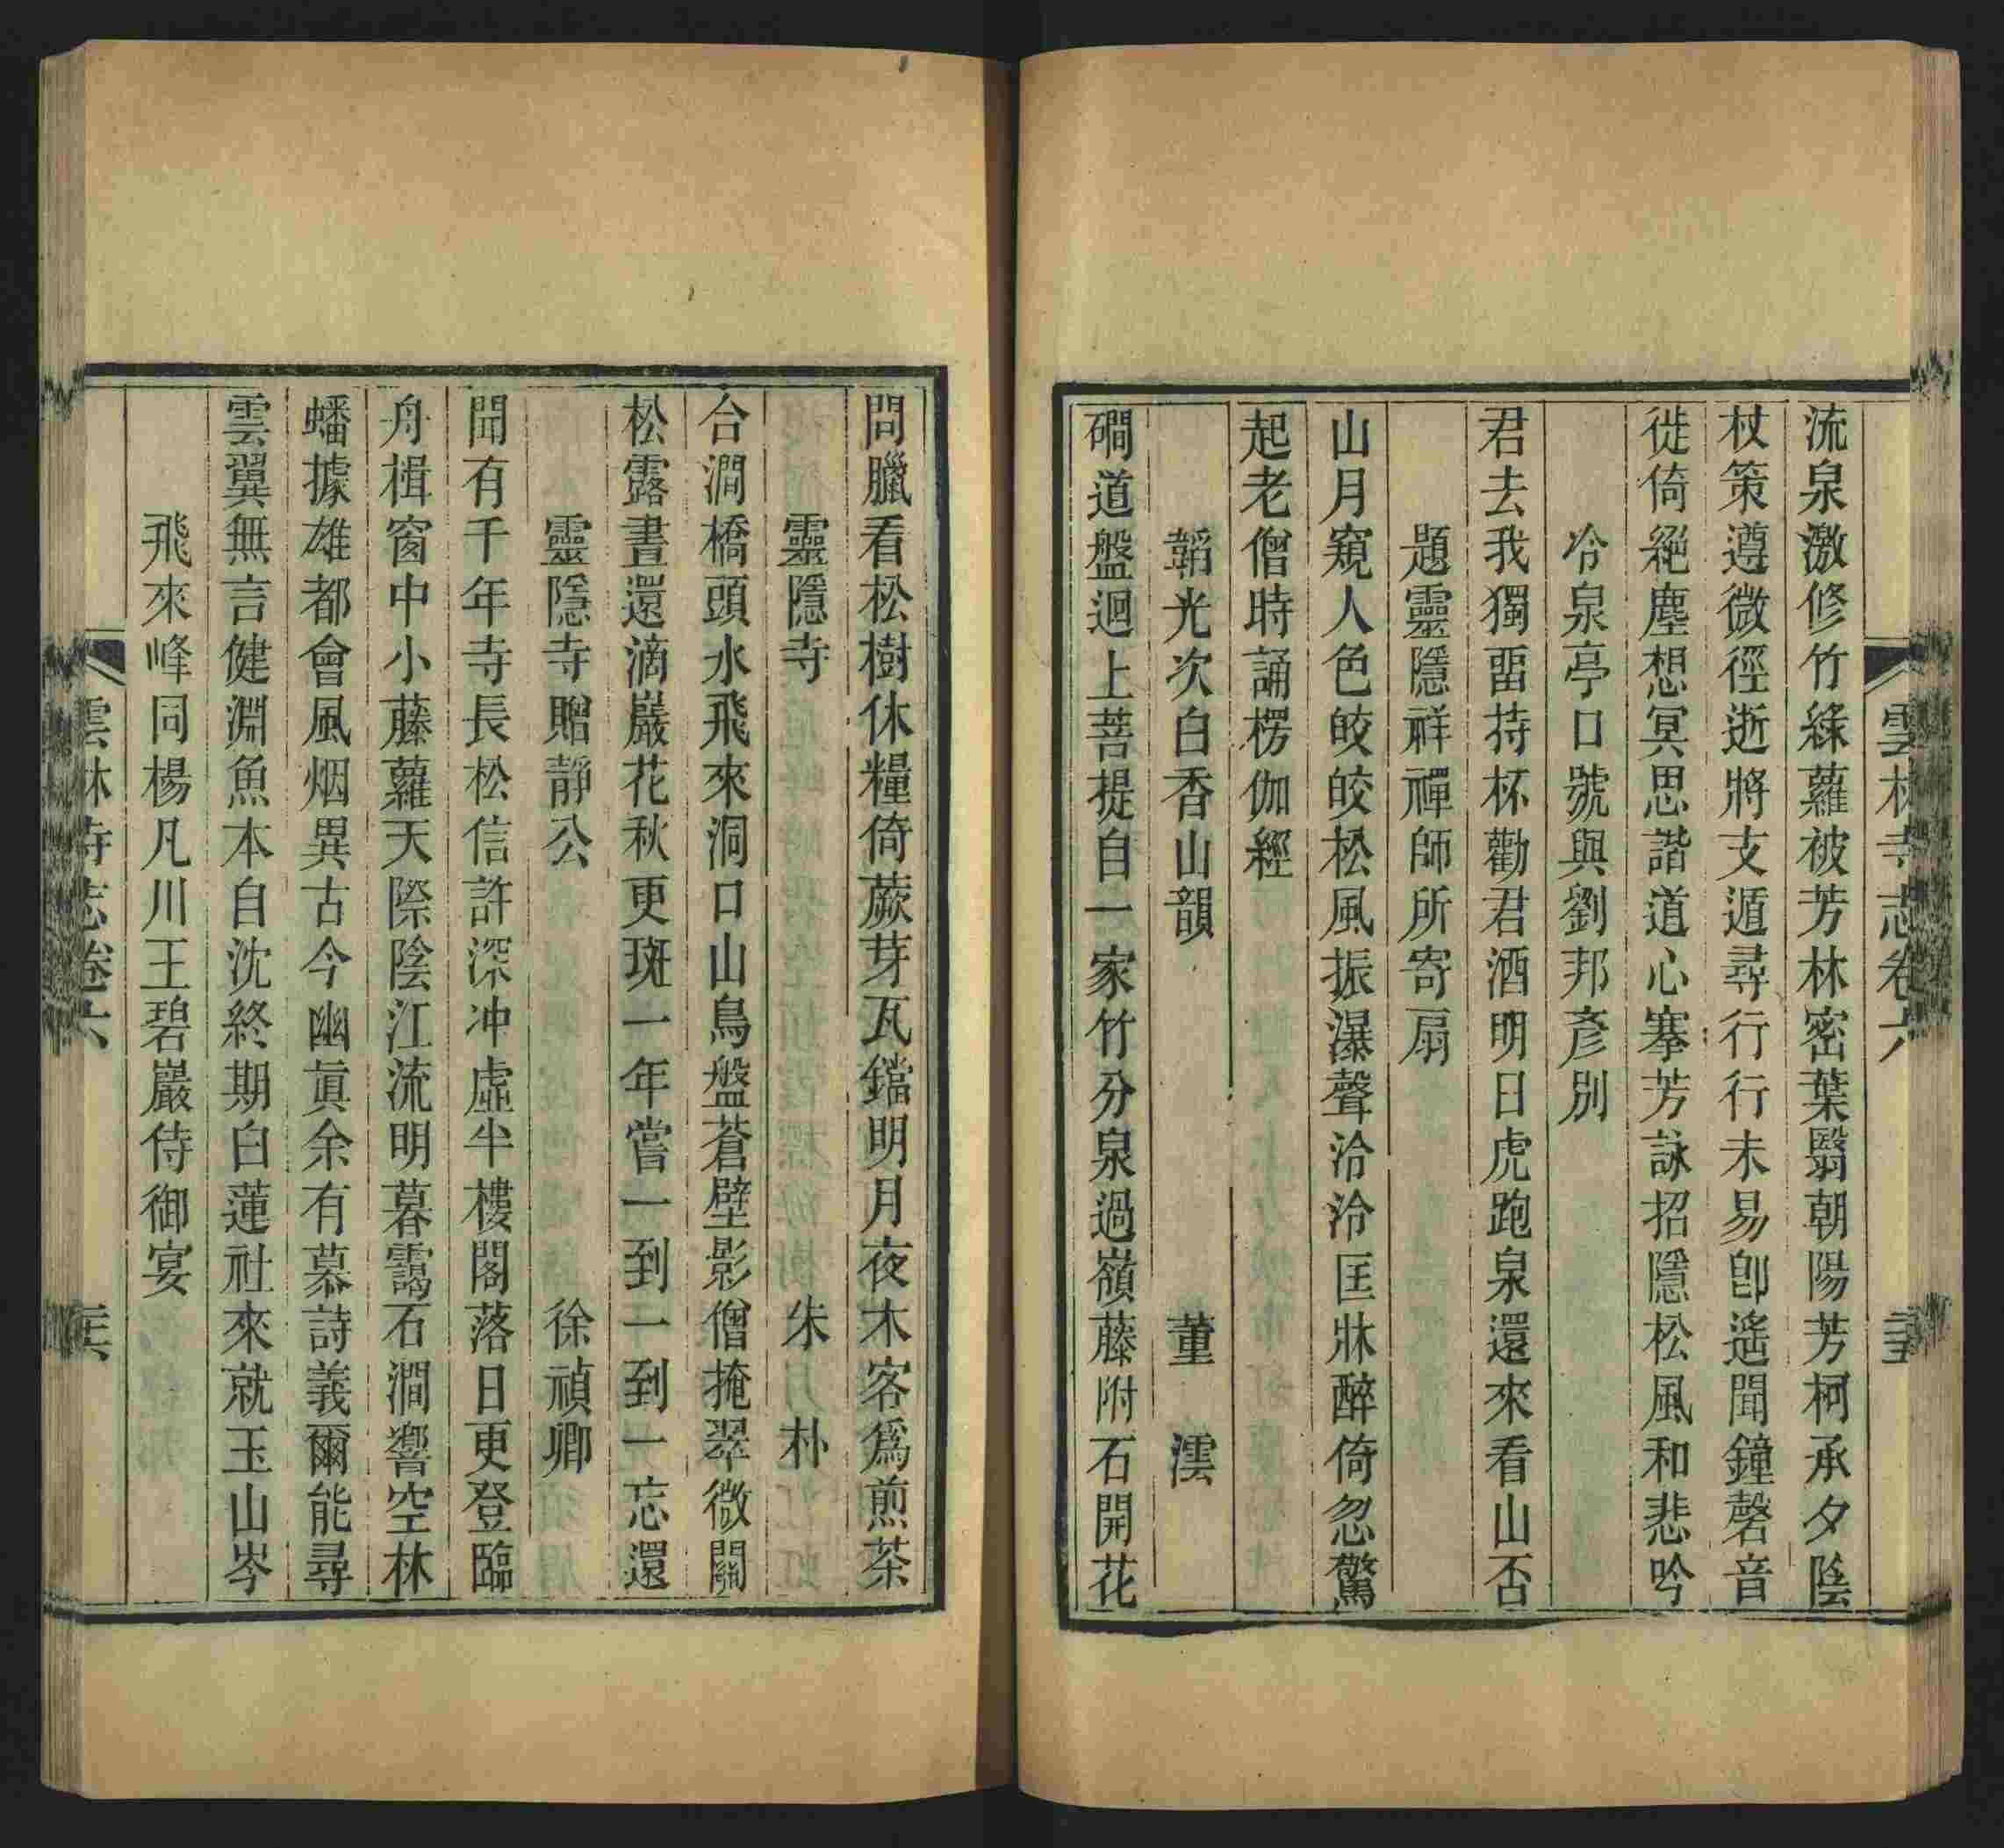 雲林寺志卷六
流泉激修竹綠蘿被芳林密葉翳朝陽芳柯承夕陰
杖策遵微徑逝將支遁尋行行未易卽遙聞鐘磬音
徙倚絕塵想冥思諧道心搴芳詠招隱松風和悲吟
冷泉亭口號與劉邦彥別
君去我獨畱持杯勸君酒明日虎跑泉還來看山否
題靈隱祥禪師所寄扇
山月窺人色皎皎松風振瀑聲泠泠匡牀醉倚忽驚
起老僧時誦楞伽經
韜光次白香山韻 董澐
磵道盤迴上菩提自一家竹分泉過嶺藤附石開花
問臘看松樹休糧倚蕨芽瓦鐺明月夜木客爲煎茶
靈隱寺 朱朴
合澗橋頭水飛來洞口山鳥盤蒼壁影僧掩翠微關
松露晝還滴巖花秋更斑一年嘗一到一到一忘還
靈隱寺贈靜公 徐禎卿
聞有千年寺長松信許深沖虛半樓閣落日更登臨
舟楫窗中小藤蘿天際陰江流明暮靄石澗響空林
蟠據雄都會風烟異古今幽眞余有慕詩義爾能尋
雲翼無言健淵魚本自沈終期白蓮社來就玉山岑
飛來峰同楊凡川王碧巖侍御宴
雲林寺志卷六